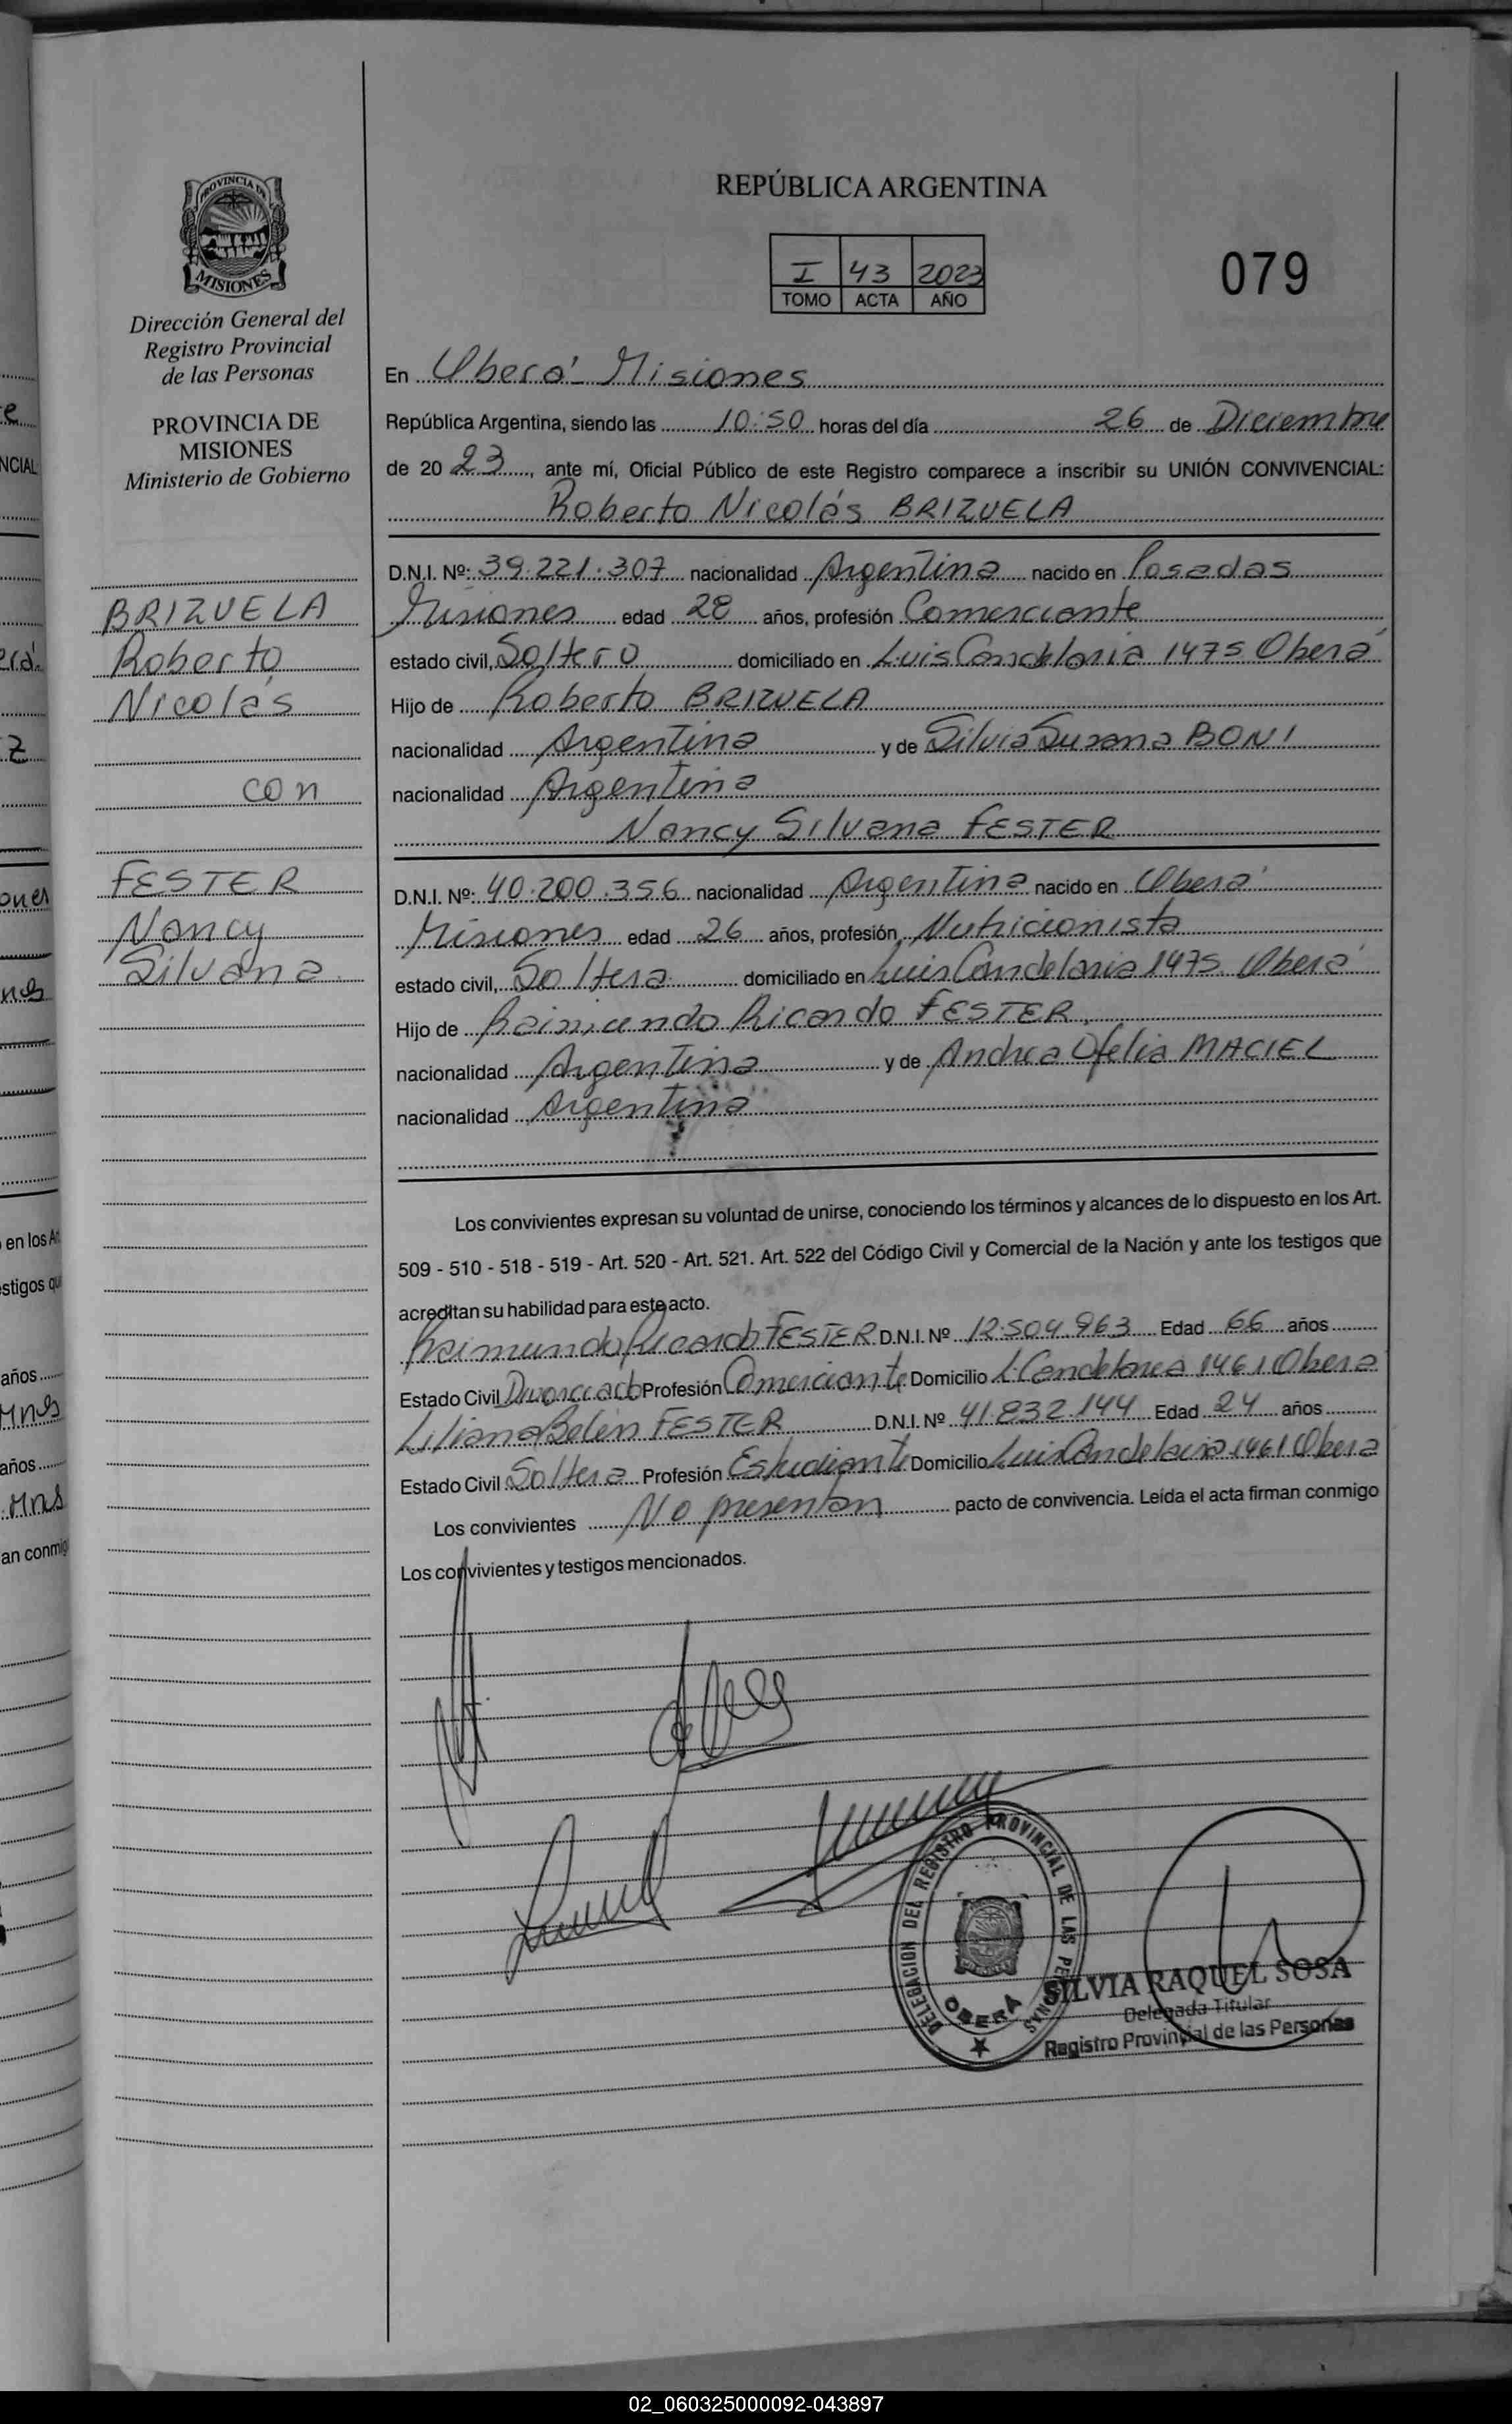 REPÚBLICA ARGENTINA
I 43 2023
TOMO ACTA AÑO
079
PROVINCIA DE
MISIONES
Dirección General del
Registro Provincial
de las Personas
PROVINCIA DE
MISIONES
Ministerio de Gobierno
BRIZUELA
Roberto
Nicolás
con
FESTER
Nancy
Silvana
En Oberá - Misiones
República Argentina, siendo las 10:50 horas del día 26 de Diciembre
de 2023, ante mí, Oficial Público de este Registro comparece a inscribir su UNIÓN CONVIVENCIAL:
Roberto Nicolás BRIZUELA
D.N.I. Nº: 39.221.307 nacionalidad Argentina nacido en Posadas
Misiones edad 28 años, profesión Comerciante
estado civil, Soltero domiciliado en Luis Candelaria 1475 Oberá
Hijo de Roberto BRIZUELA
nacionalidad Argentina y de Silvia Susana BONI
nacionalidad Argentina
Nancy Silvana FESTER
D.N.I. Nº: 40.200.356 nacionalidad Argentina nacido en Oberá
Misiones edad 26 años, profesión, Nutricionista
estado civil, Soltera domiciliado en Luis Candelaria 1475 Oberá
Hijo de Raimundo Ricardo FESTER
nacionalidad Argentina y de Andrea Ofelia MACIEL
nacionalidad Argentina
Los convivientes expresan su voluntad de unirse, conociendo los términos y alcances de lo dispuesto en los Art.
509 - 510 - 518 - 519 - Art. 520 - Art. 521. Art. 522 del Código Civil y Comercial de la Nación y ante los testigos que
acreditan su habilidad para este acto.
Raimundo Ricardo FESTER D.N.I. Nº 12.504.963 Edad 66 años
Estado Civil Divorciado Profesión Comerciante Domicilio L. Candelaria 1461 Oberá
Liliana Belén FESTER D.N.I. Nº 41.832.144 Edad 24 años
Estado Civil Soltera Profesión Estudiante Domicilio Luis Candelaria 1461 Oberá
Los convivientes No presentan pacto de convivencia. Leída el acta firman conmigo
Los convivientes y testigos mencionados.
DELEGACION DEL REGISTRO PROVINCIAL DE LAS PERSONAS
OBERA
SILVIA RAQUEL SOSA
Delegada Titular
Registro Provincial de las Personas
02_060325000092-043897